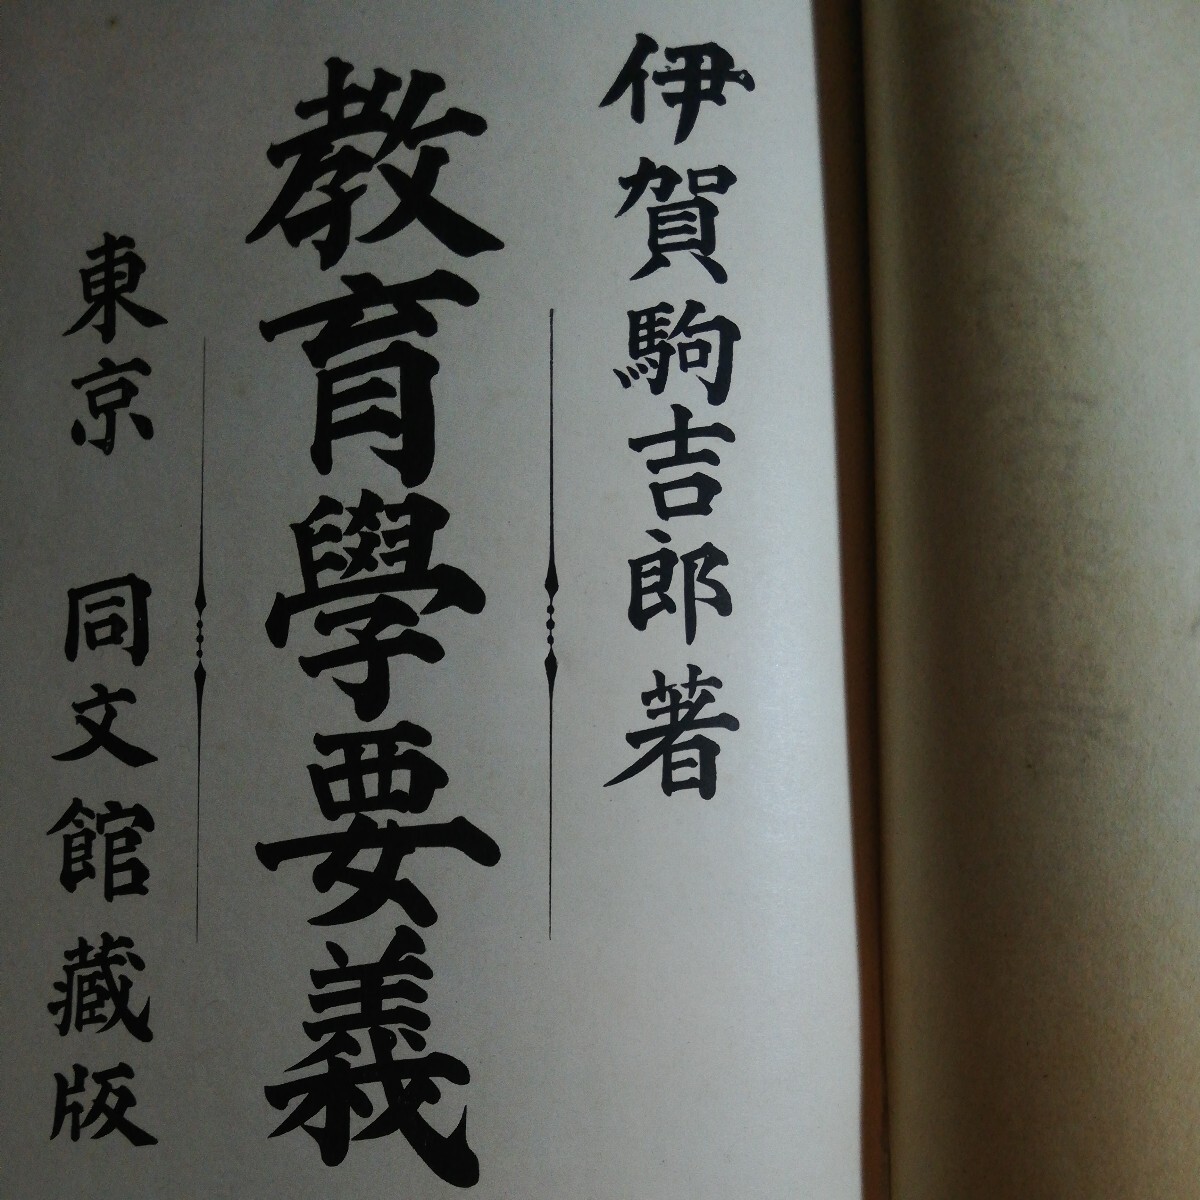 伊賀駒吉郎著
教育學要義
東京 同文館藏版